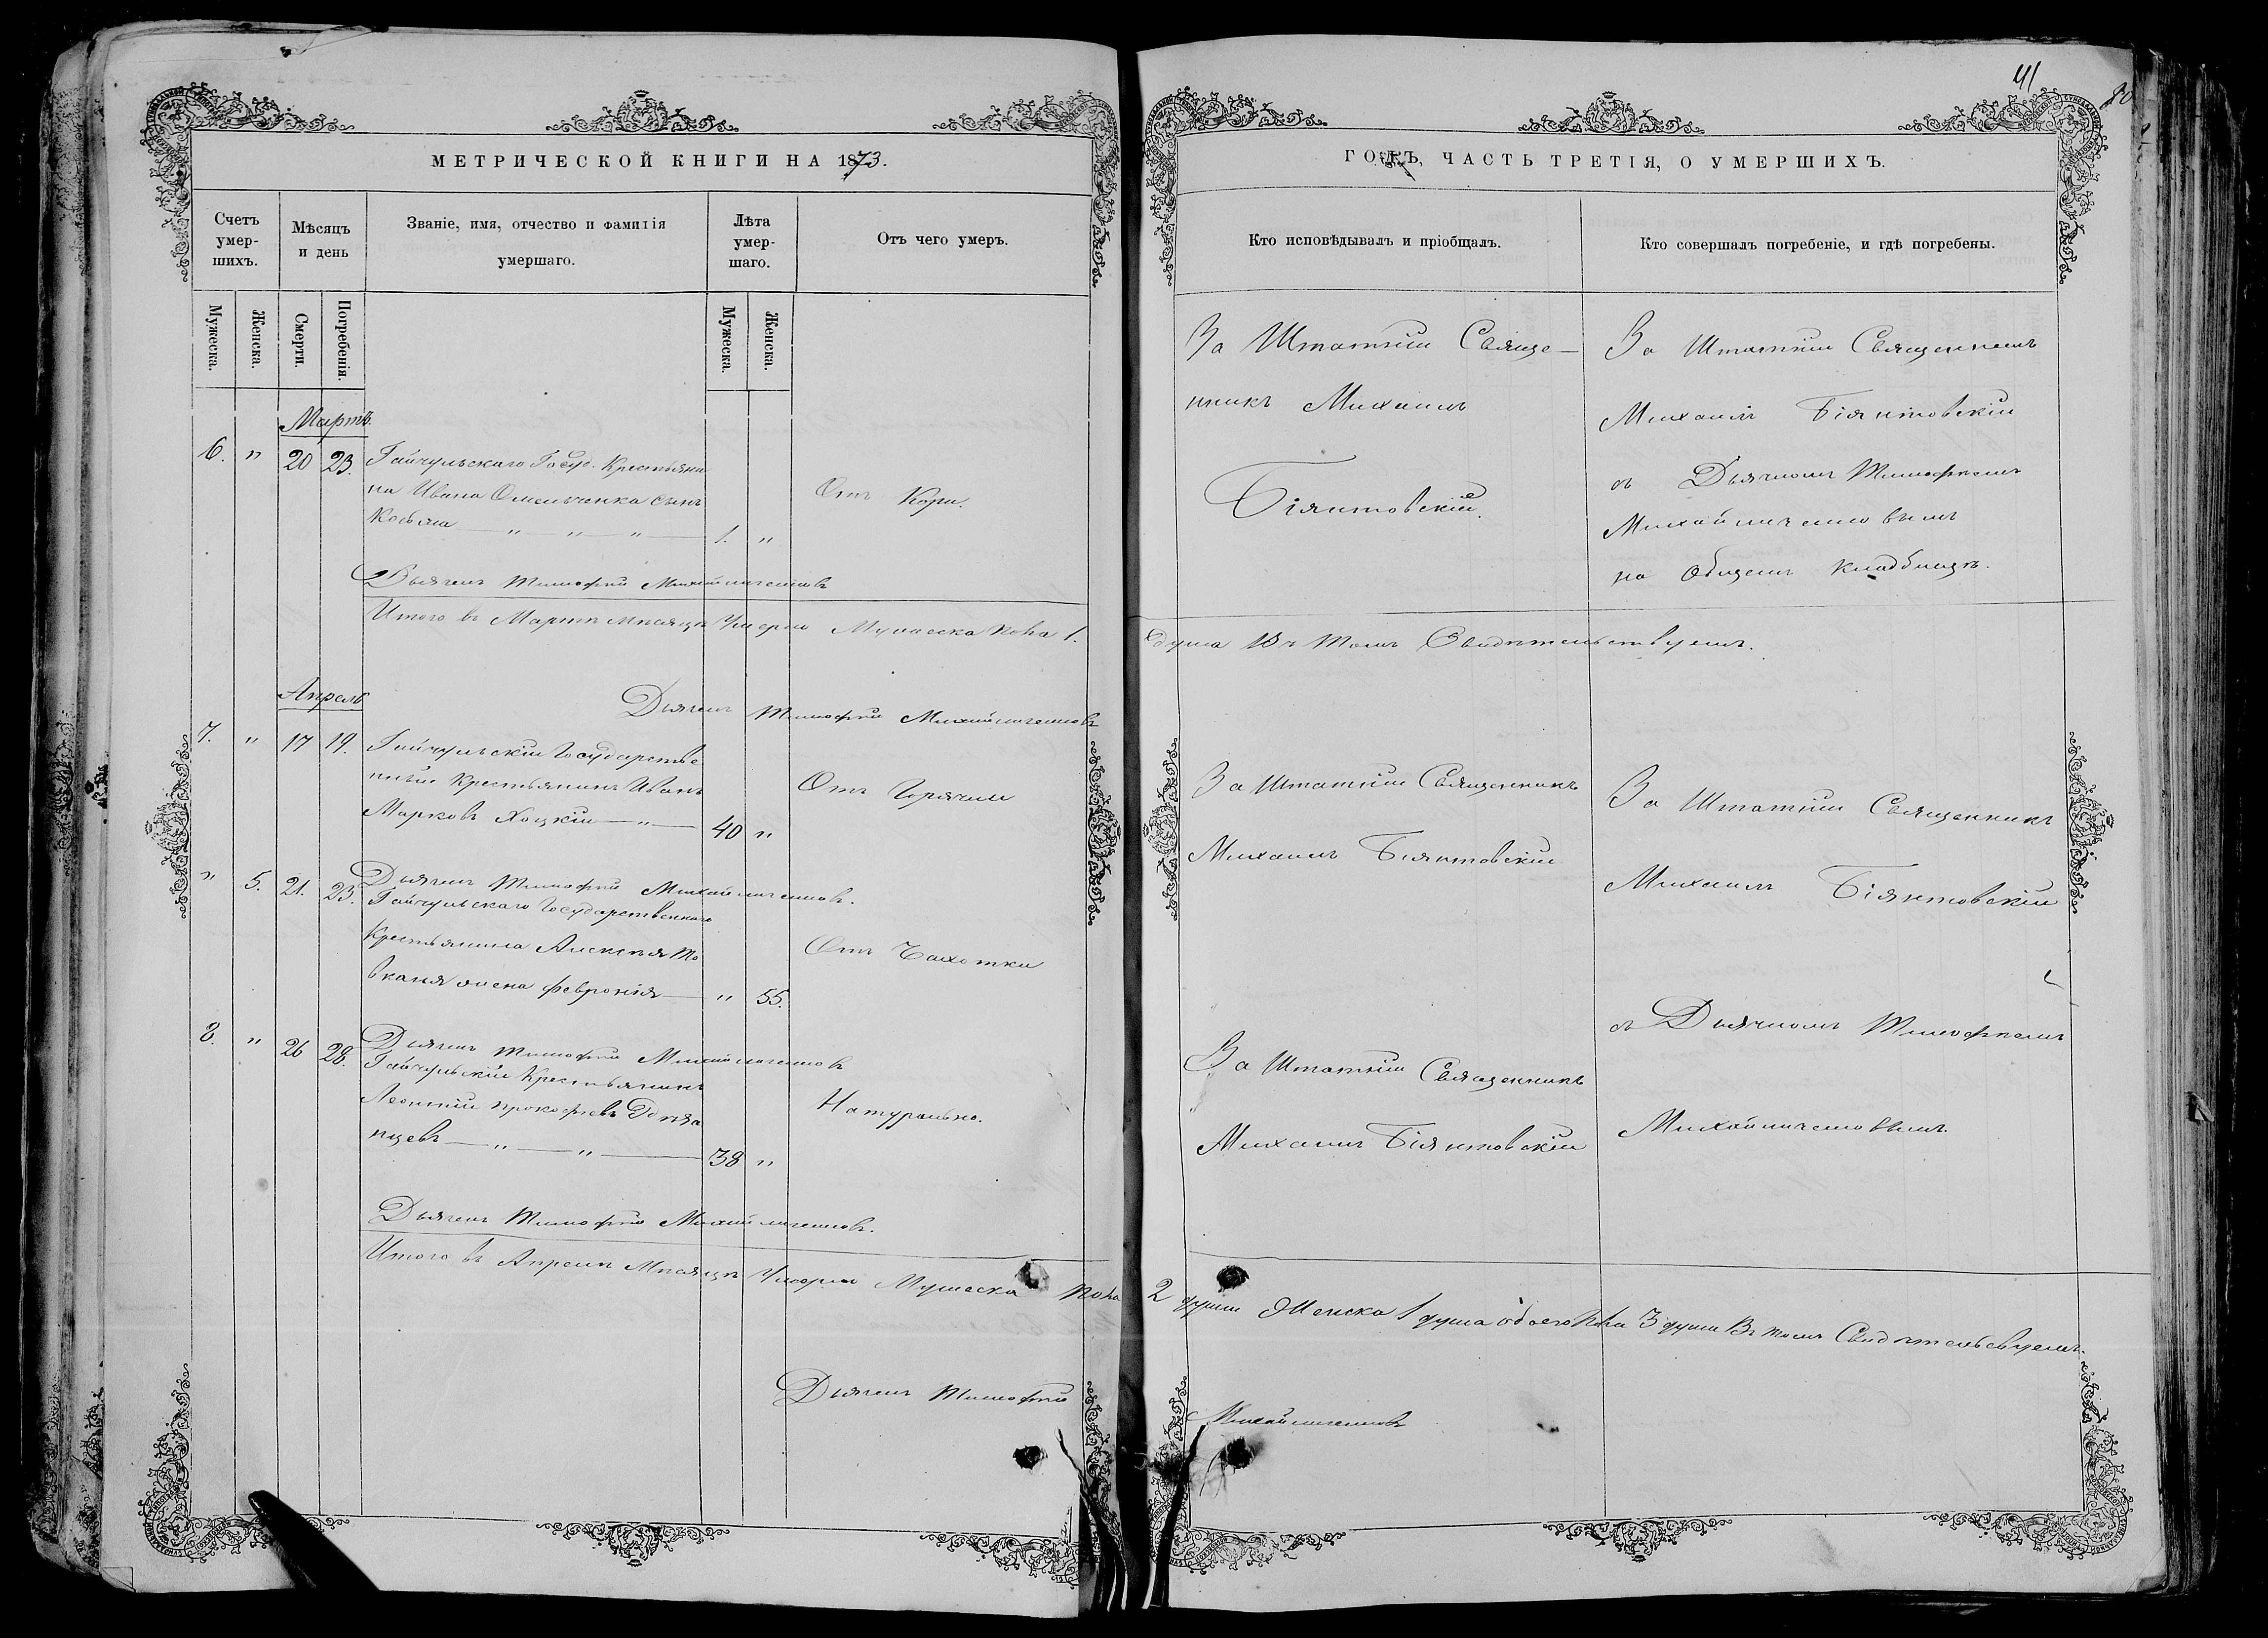 МЕТРИЧЕСКОЙ КНИГИ НА 1873.
Счетъ умер-шихъ.
Мѣсяцъ и день
Званіе, имя, отчество и фамилія умершаго.
Лѣта умер-шаго.
Отъ чего умеръ.
Мужеска.
Женска.
Смерти.
Погребенія.
Мужеска.
Женска.
Мартъ.
6. " 20 23. Гайчульскаго Госуд. Крестьяни
на Ивана Омельченка сынъ
Косьма — " — " — " — 1. "
Отъ Кори.
Дьячекъ Тимофей Михайличенковъ
Итого въ Мартѣ мѣсяцѣ Умерло Мужеска пола 1.
Апрель
Дьячекъ Тимофей Михайличенковъ
7. " 17 19. Гайчульскій Государстве
нный Крестьянинъ Иванъ
Марковъ Хоцкій — " — 40 "
Отъ Горячки
Дьячекъ Тимофей Михайличенковъ.
" 5. 21. 23. Гайчульскаго Государственнаго
Крестьянина Алексѣя То
вканя жена Февронія — " 55.
Отъ Чахотки
Дьячекъ Тимофей Михайличенковъ
8. " 26 28. Гайчульскій Крестьянинъ
Леонтій Прокофьевъ
нцевъ — " — " — 38 "
Натурально.
Дьячекъ Тимофей Михайличенковъ.
Итого въ Апрелѣ Мѣсяцѣ Умерло Мужеска пола
Дьячекъ Тимофей
41
ГОДЪ, ЧАСТЬ ТРЕТІЯ, О УМЕРШИХЪ.
Кто исповѣдывалъ и пріобщалъ.
Кто совершалъ погребеніе, и гдѣ погребены.
За Штатній Свяще—
нникъ Михаилъ
Біянтовскій.
За Штатній Священникъ
Михаилъ Біянтовскій
съ Дьячкомъ Тимофеемъ
Михайличенковымъ
на Общемъ Кладбищѣ.
душа Въ томъ Свидѣтельствуемъ.
За Штатній Священникъ
Михаилъ Біянтовскій
За Штатній Священникъ
Михаилъ Біянтовскій
За Штатній Священникъ
Михаилъ Біянтовскій
съ Дьячкомъ Тимофеемъ
Михайличенковымъ
2 души Женска 1 душа обоего пола 3 души Въ томъ Свидѣтельствуемъ.
Михайличенковъ